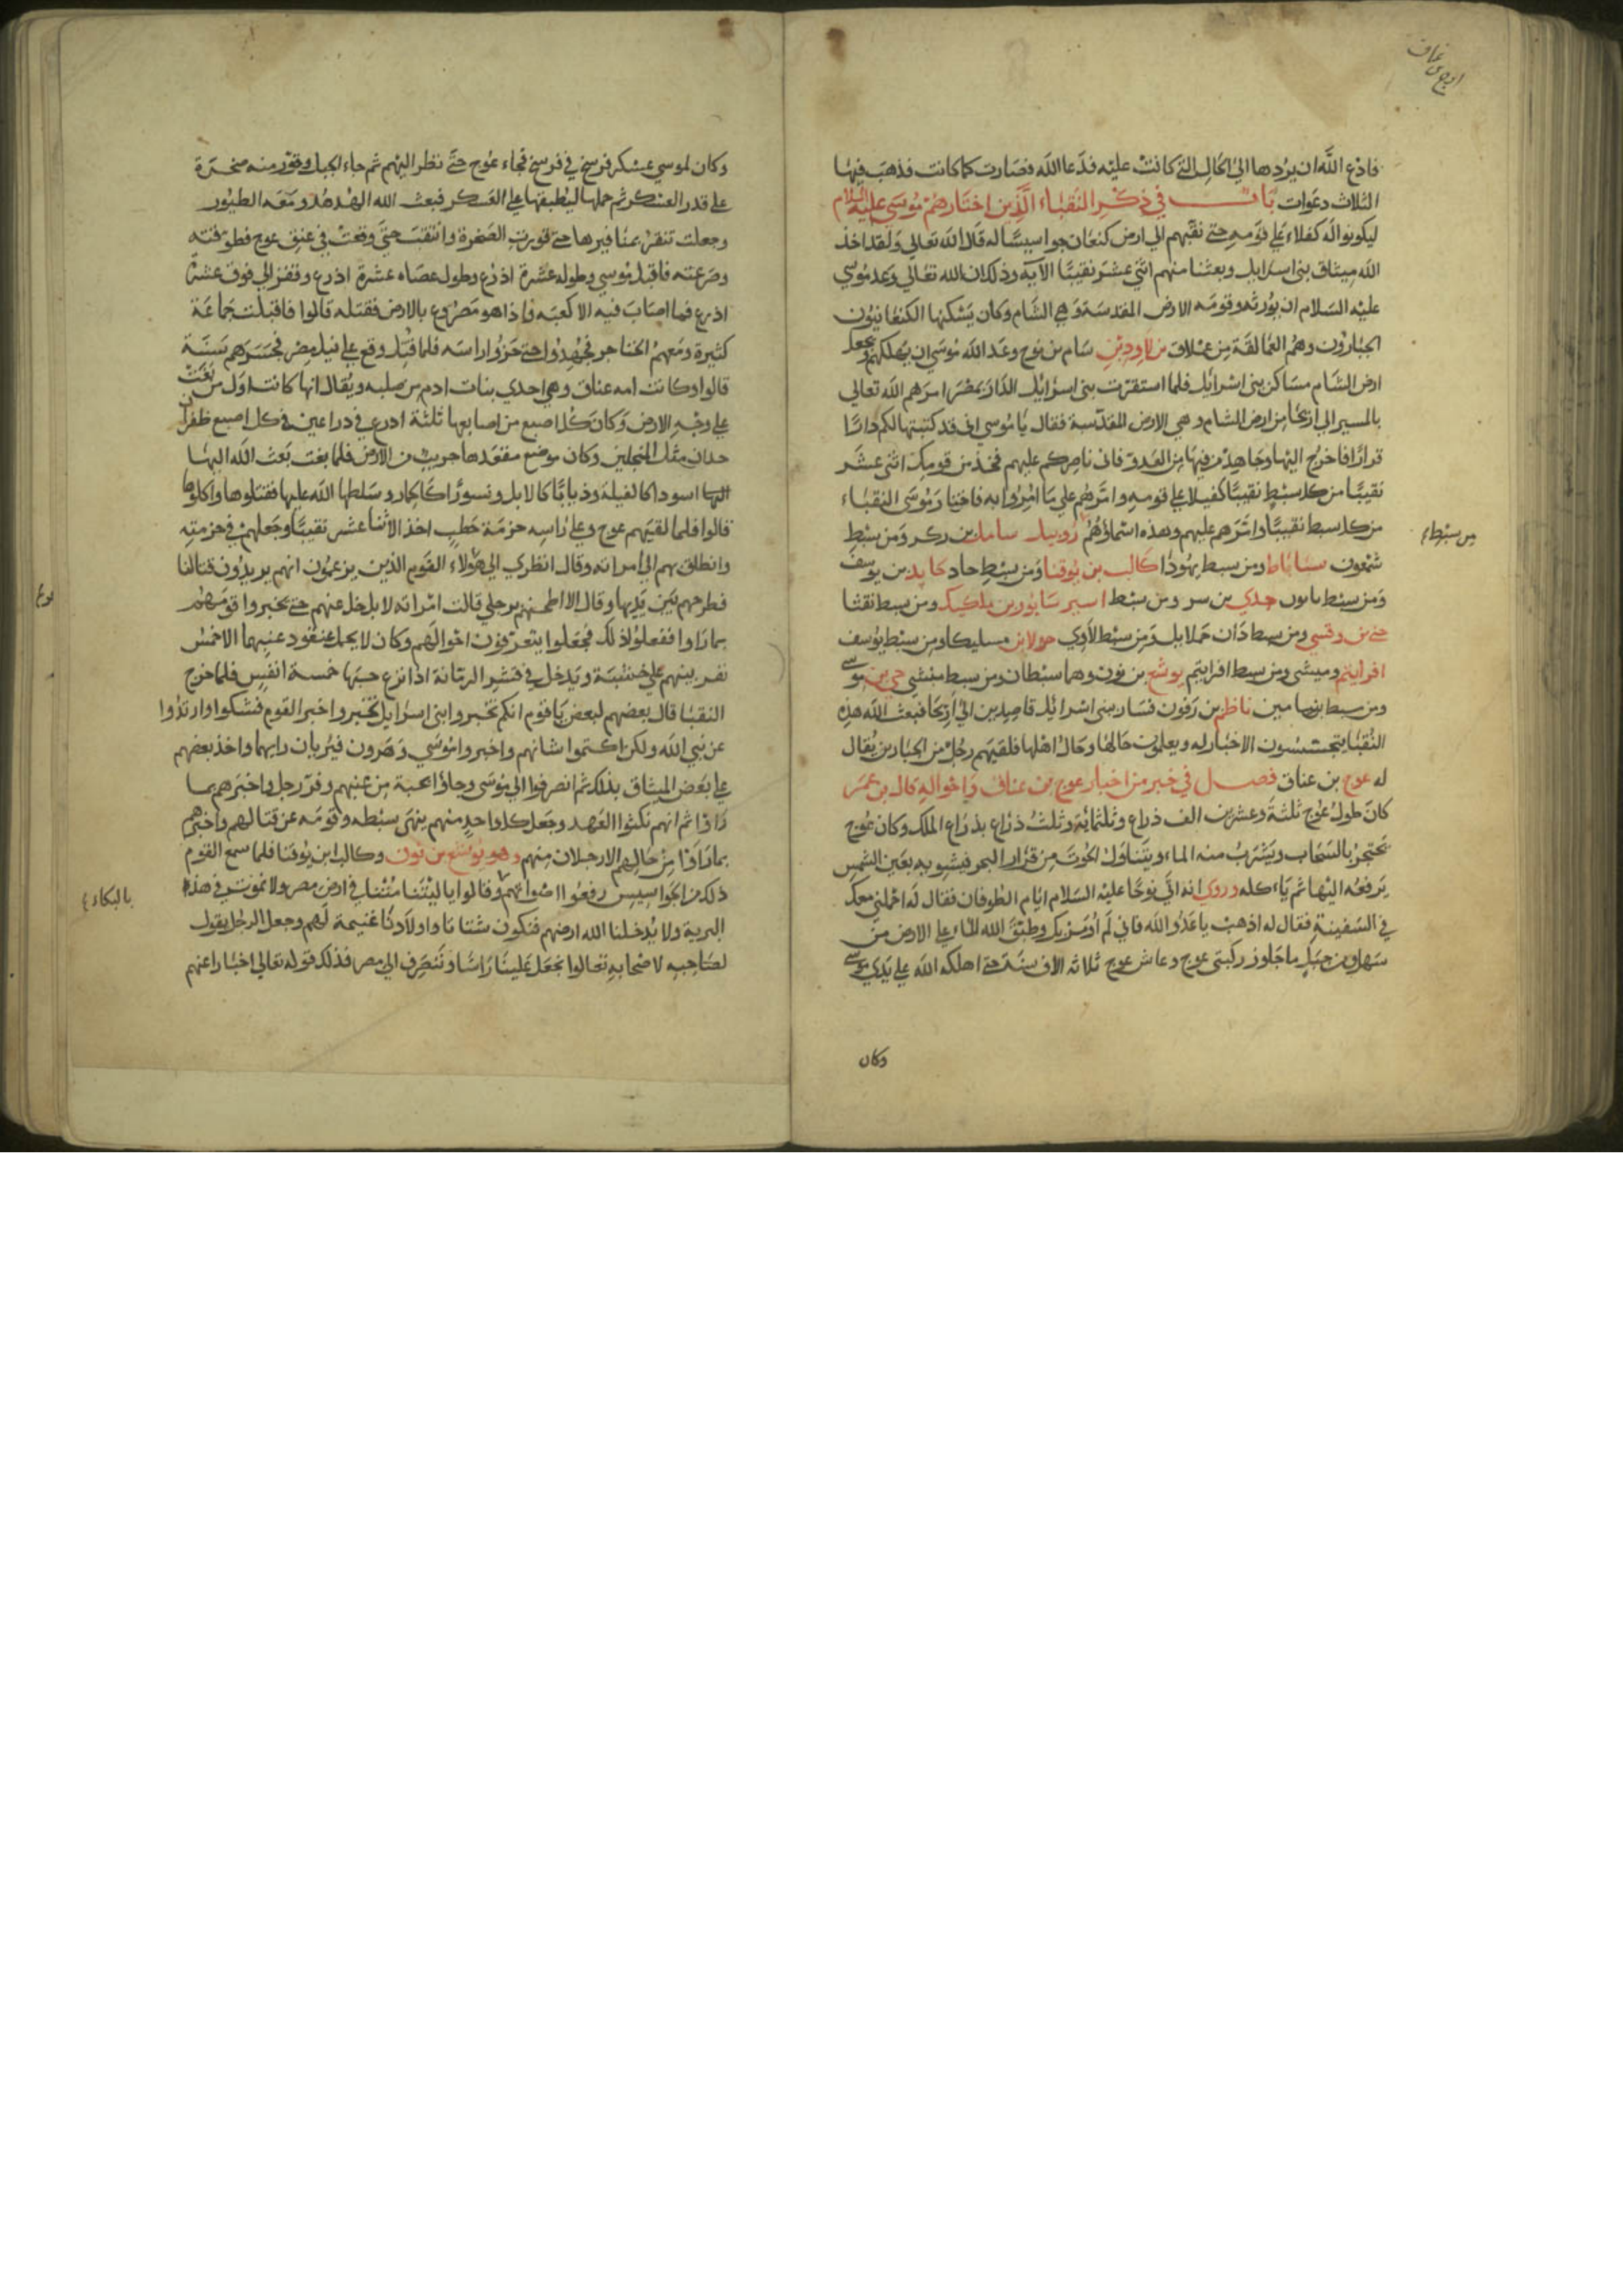 عوج بن عناق
فادع الله ان يردها الي الحال التي كانت عليه فدعا الله فصارت كما كانت فذهب فيها
الثلاث دعوات باب في ذكر النقباء الذين اختارهم موسي عليه السلام
ليكونوا له كفلاء علي قومه حتي نقبهم الي ارض كنعان جواسيسا له قال الله تعالي ولقد اخذ
الله ميثاق بني اسرايل وبعثنا منهم اثني عشر نقيبا الآية وذلك ان الله تعالي وعد موسي
عليه السلام ان يورثه وقومه الارض المقدسة وهي الشام وكان يسكنها الكنعانيون
الجبارون وهم العمالقة من عملاق بن لاود بن سام بن نوح وعد الله موسي ان يهلكهم ويجعل
ارض الشام مساكن بني اسرائل فلما استقرت بني اسرائل الدار بمصر امرهم الله تعالي
بالمسير الي اريحا من ارض الشام وهي الارض المقدسة فقال يا موسي اني قد كتبتها لكم دارا
قرارا فاخرج اليها وجاهد من فيها من العدو فاني ناصركم عليهم فخذ من قومك اثني عشر
نقيبا من كل سبط نقيبا كفيلا علي قومه وامرهم علي ما امروا به فاختار موسي النقباء
من كل سبط نقيبا وامرهم عليهم وهذه اسماؤهم روبيل سامل بن ركر ومن سبط
من سبط
شمعون ساباط ومن سبط يهوذا كالب بن يوقنا ومن سبط حاد حايد بن يوسف
ومن سبط جدي بن سر ومن سبط اسير سابور بن ملكيك ومن سبط نفثا
حي بن وقسي ومن سبط دان حملايل ومن سبط لاوي حولا بن مسليكا ومن سبط يوسف
افراييم وميشي ومن سبط افراييم يوشع بن نون وهما سبطان ومن سبط منشي حي بن موسي
ومن سبط بنيامين ناظم بن رفون فسار بني اسرائل قاصدين الي اريحا فبعث الله هذه
النقبا يتجسسون الاخبار له ويعلمون حالها وحال اهلها فلقيهم رجل من الجبارين يقال
له عوج بن عناق فصل في خبر من اخبار عوج بن عناق واحواله قال بن عمر
كان طول عوج ثلثة وعشرين الف ذراع وثلثمائة وثلث ذراع بذراع الملك وكان عوج
يحتجز بالسحاب ويشرب منه الماء ويتناول الحوت من قرار البحر فيشويه بعين الشمس
يرفعه اليها ثم ياءكله وروي انه اتي نوحا عليه السلام ايام الطوفان فقال له احملني معك
في السفينة فقال له اذهب يا عدو الله فاني لم اومر بك وطبق الله الماء علي الارض من
سهل ومن جبل ما جاوز ركبتي عوج وعاش عوج ثلاثه الاف سنة حتي اهلكه الله علي يدي موسي
وكان
وكان لموسي عسكر فرسخ في فرسخ فجاء عوج حتي نظر اليهم ثم جاء الجبل وقور منه صخرة
علي قدر العسكر ثم حملها ليطبقها علي العسكر فبعث الله الهدهد ومعه الطيور
وجعلت تنقر بمناقيرها حتي قورت الصخرة وانتقبت حتي وقعت في عنق عوج فطوقته
وصرعته فاقبل موسي وطوله عشرة اذرع وطول عصاه عشرة اذرع وقفز الي فوق عشرة
اذرع فما اصاب فيه الا كعبه واذا هو مصروع بالارض فقتله قالوا فاقبلت جماعة
كثيرة ومعهم الخناجر فجهدوا حتي حزوا راسه فلما قتل وقع علي نيل مصر فجسرهم سنة
قالوا وكانت امه عناق وهي احدي بنات ادم من صلبه ويقال انها كانت اول من بغت
علي وجه الارض وكان كل اصبع من اصابعها ثلثة اذرع في ذراعين في كل اصبع ظفران
حدان مثل المنجلين وكان موضع مقعدها جريب من الارض فلما بغت بعث الله اليها
اليها اسودا كالفيلة وذيابا كالابل ونسورا كالحمار وسلطها الله عليها فقتلوها واكلوها
قالوا فلما لقيهم عوج وعلي راسه حزمة حطب اخذ الاثنا عشر نقيبا وجعلهم في حزمته
وانطلق بهم الي امراته وقال انظري الي هولاء القوم الذين يزعمون انهم يريدون قتالنا
فطرحهم بين يديها وقال الا اطحنهم برجلي قالت امراته لا بل خل عنهم حتي يخبروا قومهم
بما راوا ففعلوا ذلك فجعلوا يتعرفون احوالهم وكان لا يحمل عنقود عنبهما الا خمس
نفر بينهم علي خشبة ويدخل في قشر الرمانة اذا نزع حبها خمسة انفس فلما خرج
النقبا قال بعضهم لبعض يا قوم انكم تخبروا بني اسرايل بخبر القوم فشكوا وارتدوا
عن نبي الله ولكن اكتموا شانهم واخبروا موسي وهرون فيريان رايهما واخذ بعضهم
علي بعض الميثاق بذلك ثم انصرفوا الي موسي وجاؤا بحبة من عنبهم وقدر رجل واخبرهم بما
راوا ثم انهم نكثوا العهد وجعل كل واحد منهم ينهي سبطه وقومه عن قتالهم واخبرهم
بما راوا من حالهم الا رجلان منهم وهو يوشع بن نون وكالب ابن يوقنا فلما سمع القوم
ذلك من الجواسيس رفعوا اصواتهم وقالوا يا ليتنا متنا في ارض مصر ولا نموت في هذه
بالبكاء
البرية ولا يدخلنا الله ارضهم فتكون نساؤنا واولادنا غنيمة لهم وجعل الرجل يقول
لصاحبه لاصحابه تعالوا نجعل علينا راسا وننصرف الي مصر فذلك قوله تعالي اخبارا عنهم